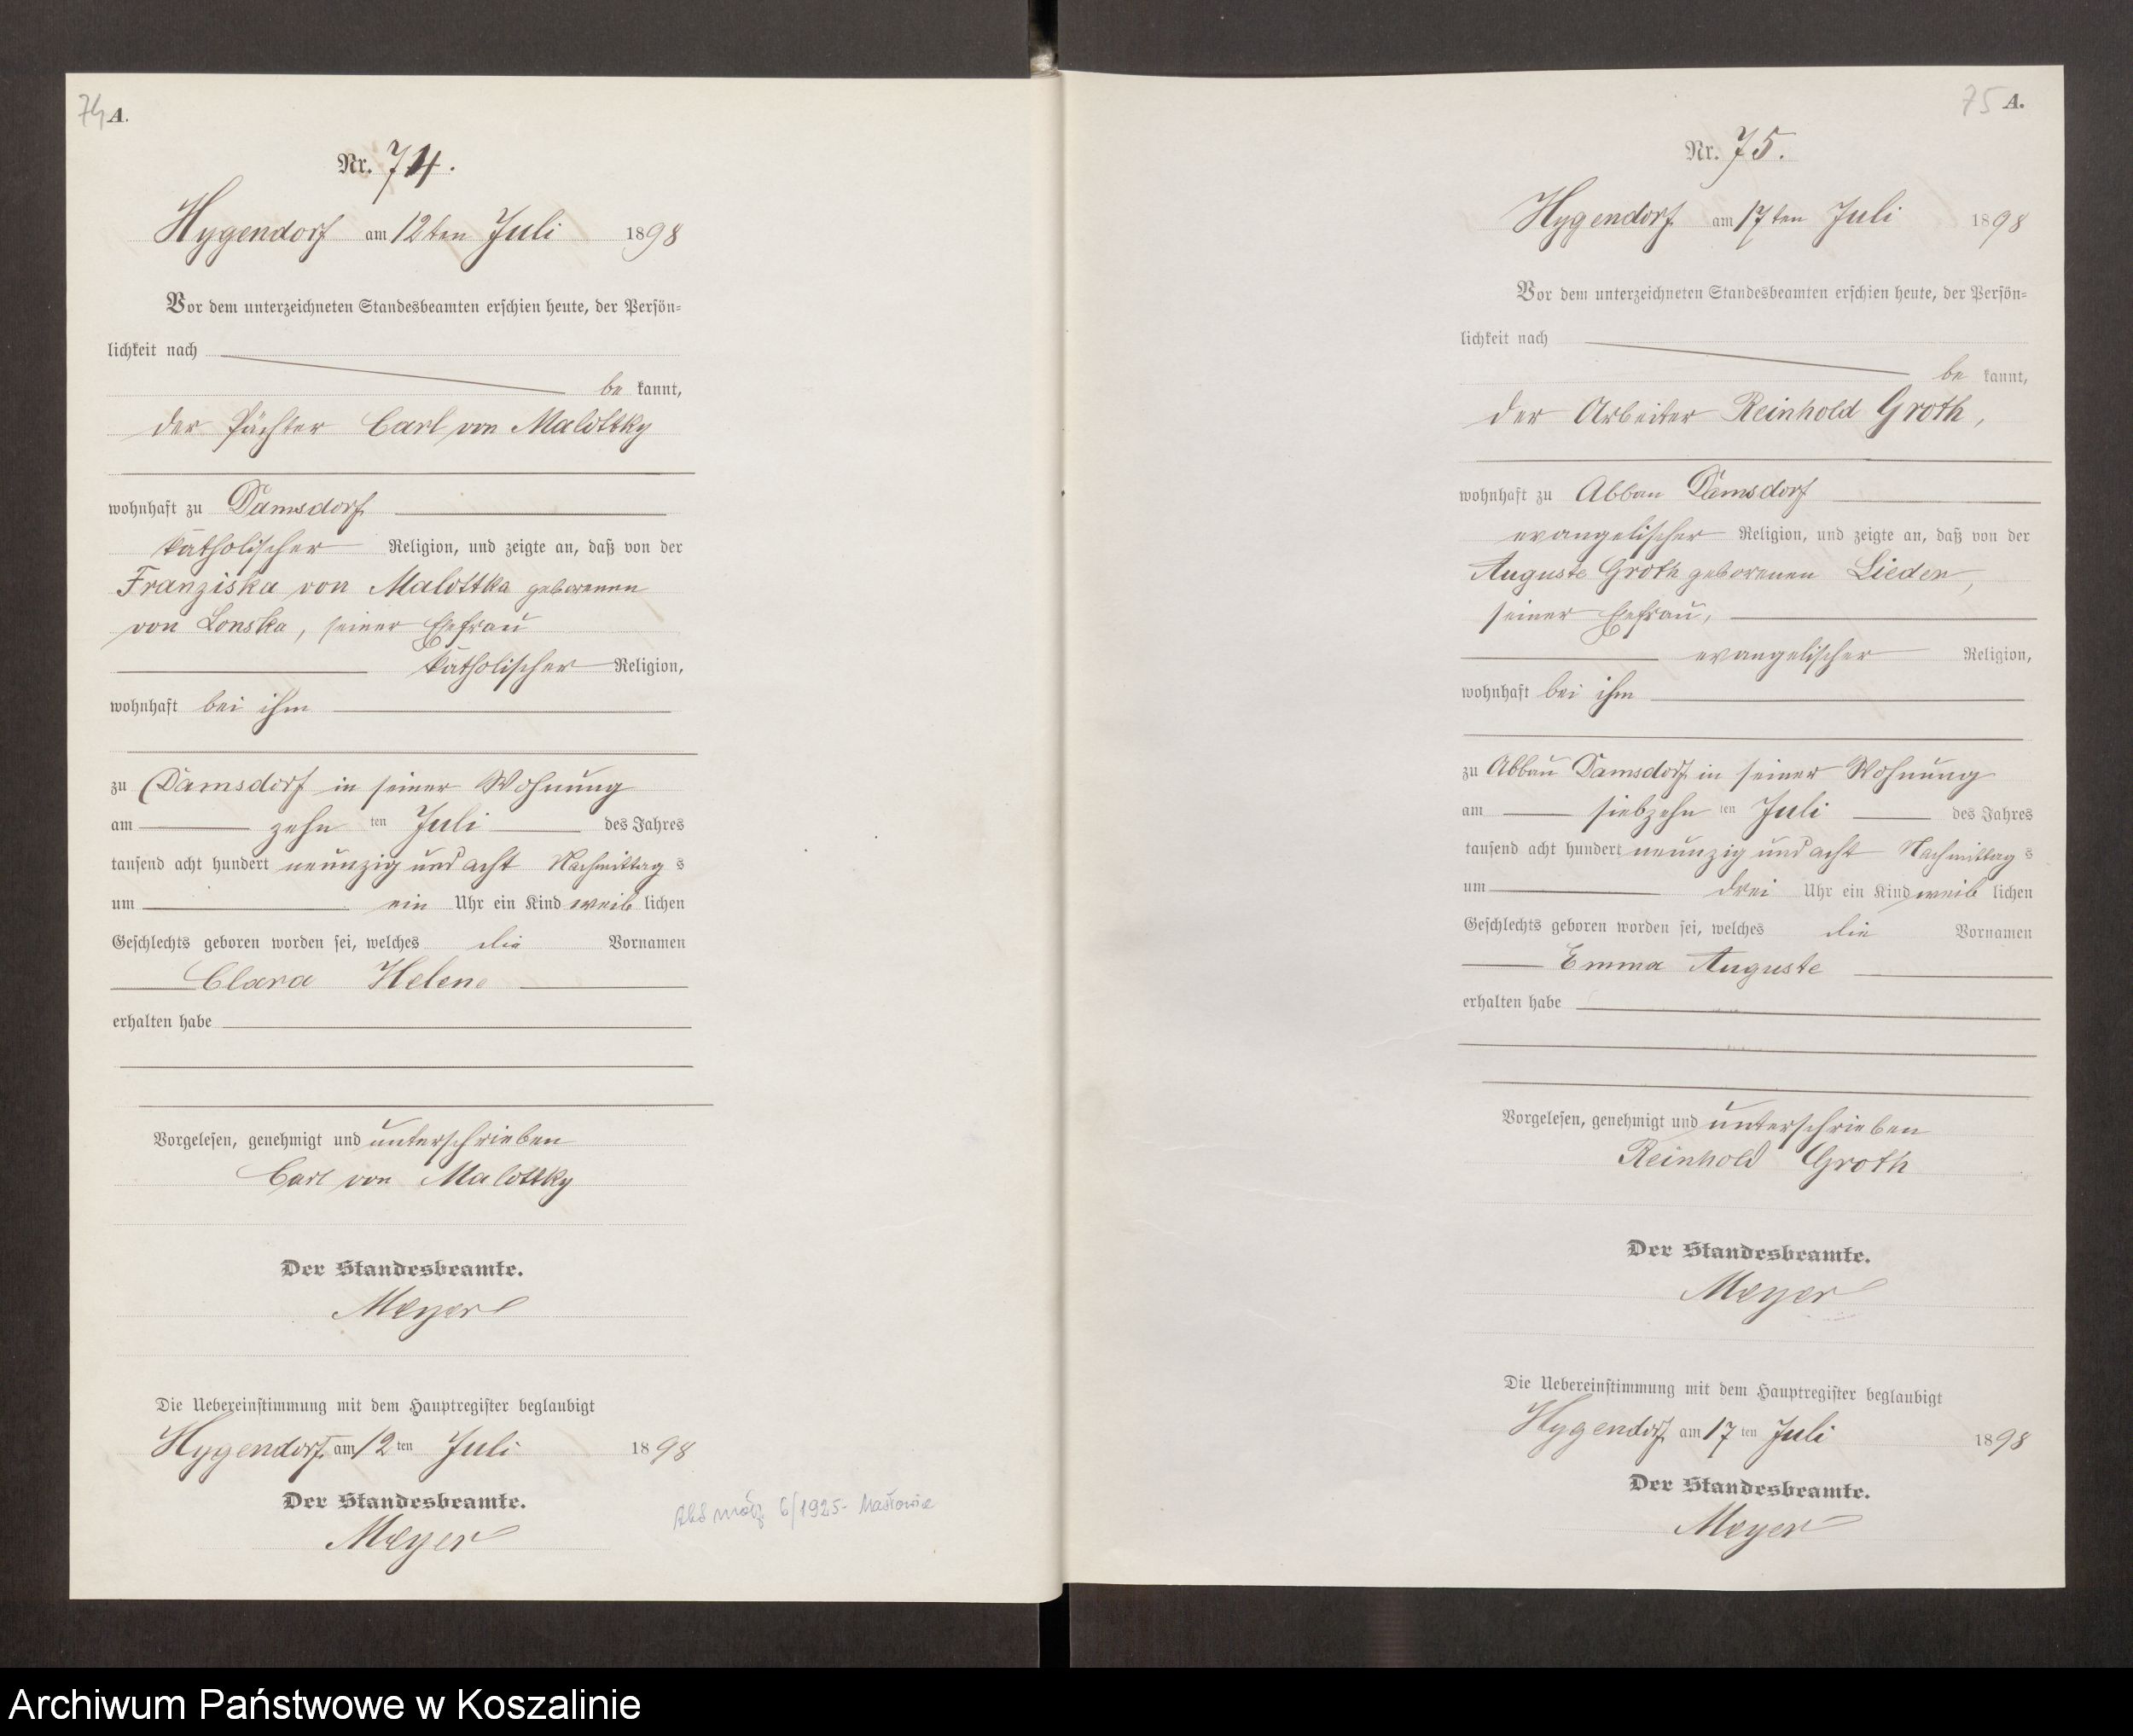 74 A.
Nr. 74.
Hygendorf am 12ten Juli 1898
Vor dem unterzeichneten Standesbeamten erschien heute, der Persön-
lichkeit nach
be kannt,
der Pächter Carl von Malottky
wohnhaft zu Damsdorf
katholischer Religion, und zeigte an, daß von der
Franziska von Malottka geborenen
von Lonska, seiner Ehefrau
katholischer Religion,
wohnhaft bei ihm
zu Damsdorf in seiner Wohnung
am zehn ten Juli des Jahres
tausend acht hundert neunzig und acht Nachmittag s
um ein Uhr ein Kind weib lichen
Geschlechts geboren worden sei, welches die Vornamen
Clara Helene
erhalten habe
Vorgelesen, genehmigt und unterschrieben
Carl von Malottky
Der Standesbeamte.
Meyer
Die Uebereinstimmung mit dem Hauptregister beglaubigt
Hygendorf am 12 ten Juli 1898
Der Standesbeamte.
Meyer
6/1925-
75 A.
Nr. 75.
Hygendorf am 17ten Juli 1898
Vor dem unterzeichneten Standesbeamten erschien heute, der Persön-
lichkeit nach
be kannt,
der Arbeiter Reinhold Groth,
wohnhaft zu Abbau Damsdorf
evangelischer Religion, und zeigte an, daß von der
Auguste Groth geborenen Lieder,
seiner Ehefrau,
evangelischer Religion,
wohnhaft bei ihm
zu Abbau Damsdorf in seiner Wohnung
am siebzehn ten Juli des Jahres
tausend acht hundert neunzig und acht Nachmittag s
um drei Uhr ein Kind weib lichen
Geschlechts geboren worden sei, welches die Vornamen
Emma Auguste
erhalten habe
Vorgelesen, genehmigt und unterschrieben
Reinhold Groth
Der Standesbeamte.
Meyer
Die Uebereinstimmung mit dem Hauptregister beglaubigt
Hygendorf am 17 ten Juli 1898
Der Standesbeamte.
Meyer
Archiwum Państwowe w Koszalinie